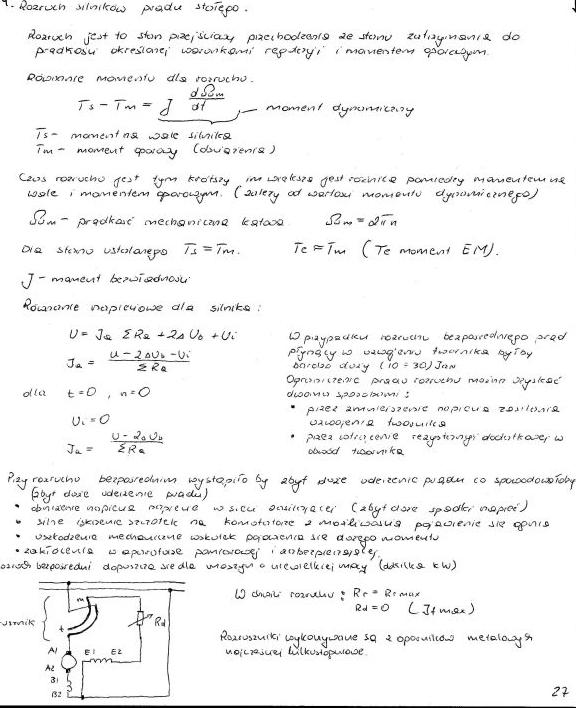 Rozruch silników prądu stałego.
Rozruch jest to stan przejściowy przechodzenia ze stanu zatrzymania do
prędkości określonej warunkami regulacji i momentem oporowym.
Równanie momentu dla rozruchu.
Ts - Tm = J dΩm/dt moment dynamiczny
Ts - moment na wale silnika
Tm - moment oporowy (obciążenia)
Czas rozruchu jest tym krótszy im większa jest różnica pomiędzy momentem na
wale i momentem oporowym. (zależy od wartości momentu dynamicznego)
Ωm - prędkość mechaniczna kątowa. Ωm = 2πn
Dla stanu ustalonego Ts = Tm. Te ≈ Tm (Te moment EM).
J - moment bezwładności
Równanie napięciowe dla silnika:
U = Ja ΣRa + 2ΔUb + Ui
Ja = U - 2ΔUb - Ui / ΣRa
dla t=0, n=0
Ui = 0
Ja = U - 2ΔUb / ΣRa
W przypadku rozruchu bezpośredniego prąd
płynący w uzwojeniu twornika byłby
bardzo duży (10 ÷ 30) JaN
Ograniczenie prądu rozruchu można uzyskać
dwoma sposobami:
• przez zmniejszenie napięcia zasilania
uzwojenia twornika
• przez włączenie rezystancji dodatkowej w
obwód twornika
Przy rozruchu bezpośrednim wystąpiło by zbyt duże uderzenie prądu co spowodowałoby
(zbyt duże uderzenie prądu)
• obniżenie napięcia napięcie w sieci zasilającej (zbyt duże spadki napięć)
• silne iskrzenie szczotek na komutatorze z możliwością pojawienie się ognia
• uszkodzenie mechaniczne wskutek pojawienia się dużego momentu
• zakłócenia w aparaturze pomiarowej i zabezpieczającej.
bezpośredni dopuszcza się dla maszyn o niewielkiej mocy (do kilka kW)
W chwili rozruchu: Rr = Rrmax
Rd = 0 (Jfmax)
Rozruszniki wykonywane są z oporników metalowych
najczęściej kilkustopniowe.
m
t
Rd
A1
E1 E2
A2
B1
B2
27